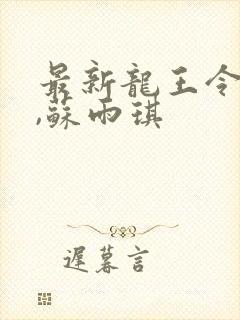 最新龍王令
,蘇雨琪
遲暮言